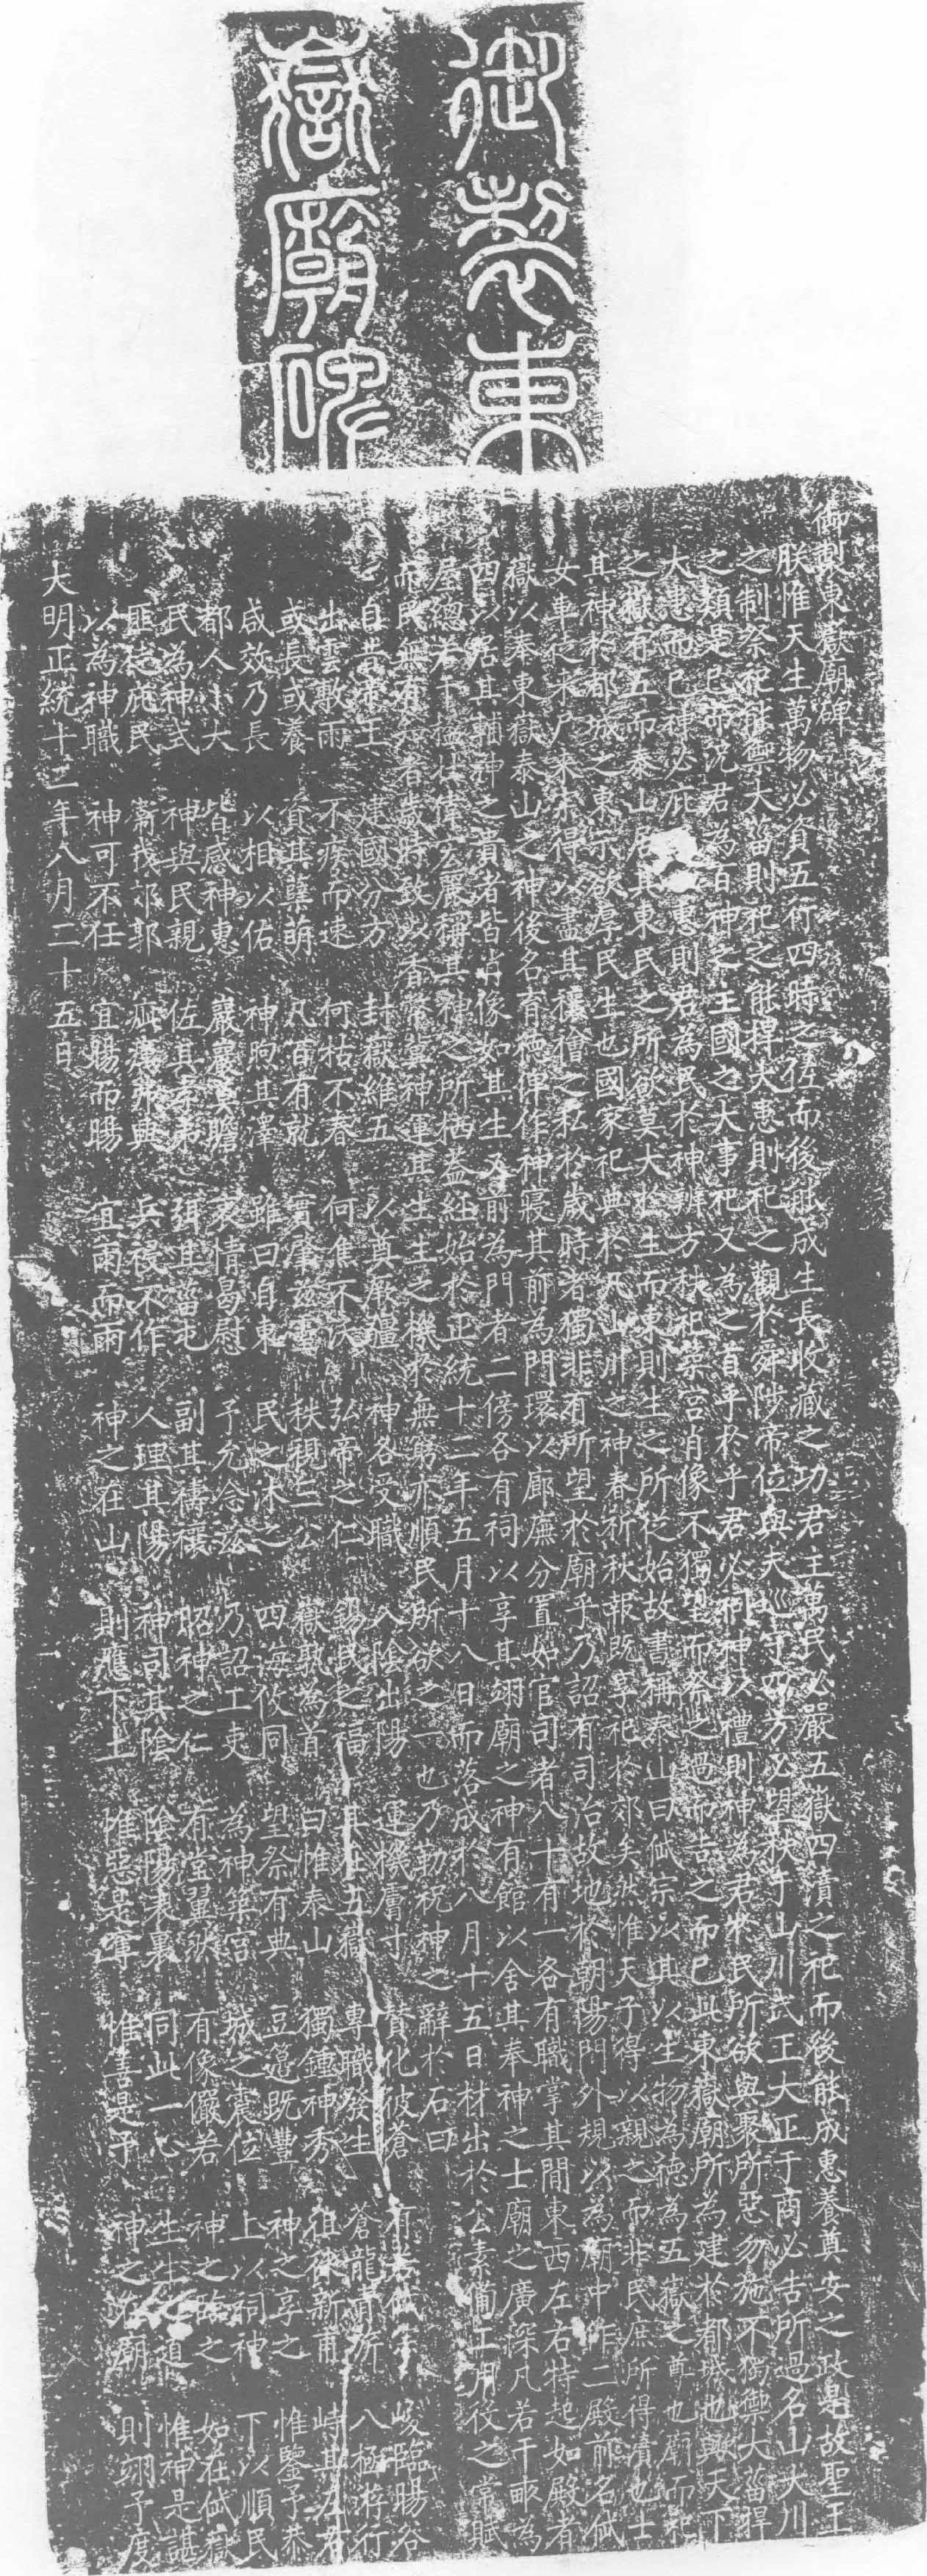 御製東
嶽廟碑
御製東嶽廟碑
朕惟天生萬物必資五行四時之佐而後能成生長收藏之功君主萬民必嚴五嶽四瀆之祀而後能成惠養奠安之政是故聖王
之制祭祀能禦大菑則祀之能捍大患則祀之觀於舜陟帝位與夫巡守四方必望秩于山川武王大正于商必告所過名山大川
之類是已而況君為百神之主國之大事祀又為之首乎於乎君必祠神以禮則神為君於民所欲與聚所惡勿施不獨禦大菑捍
大患而已神必庇惠則君為民於神辨方秩祀築宮肖像不獨望而祭之過而告之而已此東嶽廟所為建於都城也與天下
之嶽有五而泰山居其東民之所欲莫大於生而東則生之所從始故書稱泰山曰岱宗以其以生物為德為五嶽之尊也廟而祀
其神於都城之東示欲厚民生也國家祀典於凡山川之神春祈秋報既享祀於郊矣然惟天子得以親之而非民庶所得瀆也士
女車徒來尸來宗得以盡其禳禬之私於歲時者獨非有所望於廟乎乃詔有司治故地於朝陽門外規以為廟中作二殿前名岱
嶽以奉東嶽泰山之神後名育德俾作神寢其前為門環以廊廡分置如官司者八十有一各有職掌其間東西左右特起如殿者
四以居其輔神之貴者皆肖像如其生又前為門者二傍各有祠以享其翊廟之神有館以舍其奉神之士廟之廣深凡若干畝為
屋總若干楹壯偉宏麗稱其神之所栖蓋經始於正統十二年五月十八日而落成於八月十五日材出於公素備工用役之常賦
而民無有知者歲時致以香幣冀神運其生生之機於無窮亦順民所欲之一也乃勒祝神之辭於石曰
自昔帝王 建國分方 封嶽維五 以奠厥疆 神各受職 入陰出陽 運機膚寸 贊化彼蒼 有岩岱宗 峻臨暘谷
出雲敷雨 不疾而速 何枯不春 何焦不沃 弘帝之仁 錫民之福 其在五嶽 專職發生 蒼龍青旂 八極游行
或長或養 資其孽萌 凡百有就 實肇茲 秩視三公 嶽孰為首 曰惟泰山 獨鍾神秀 徂徠新甫 峙其左右
咸效乃長 以相以佑 神煦其澤 雖曰自東 民之沐之 四海攸同 望祭有典 豆籩既豐 神之享之 惟鑒予恭
都人小大 皆感神惠 巖巖具瞻 衷情曷慰 予允念茲 乃詔工吏 為神築宮 城之震位 上以祠神 下以順民
民為神式 神與民親 佐其孝弟 弭其菑屯 副其禱禳 昭神之仁 有堂翼然 有像儼若 神之臨之 如在岱嶽
匪徒庇民 衛我郊郭 疵癘弗興 兵祲不作 人理其陽 神司其陰 陰陽表裏 同此一心 生生之道 惟神是諶
以為神職 神可不任 宜暘而暘 宜雨而雨 神之在山 則應下上 惟惡是奪 惟善是予 神之在廟 則翊予度
大明正統十二年八月二十五日